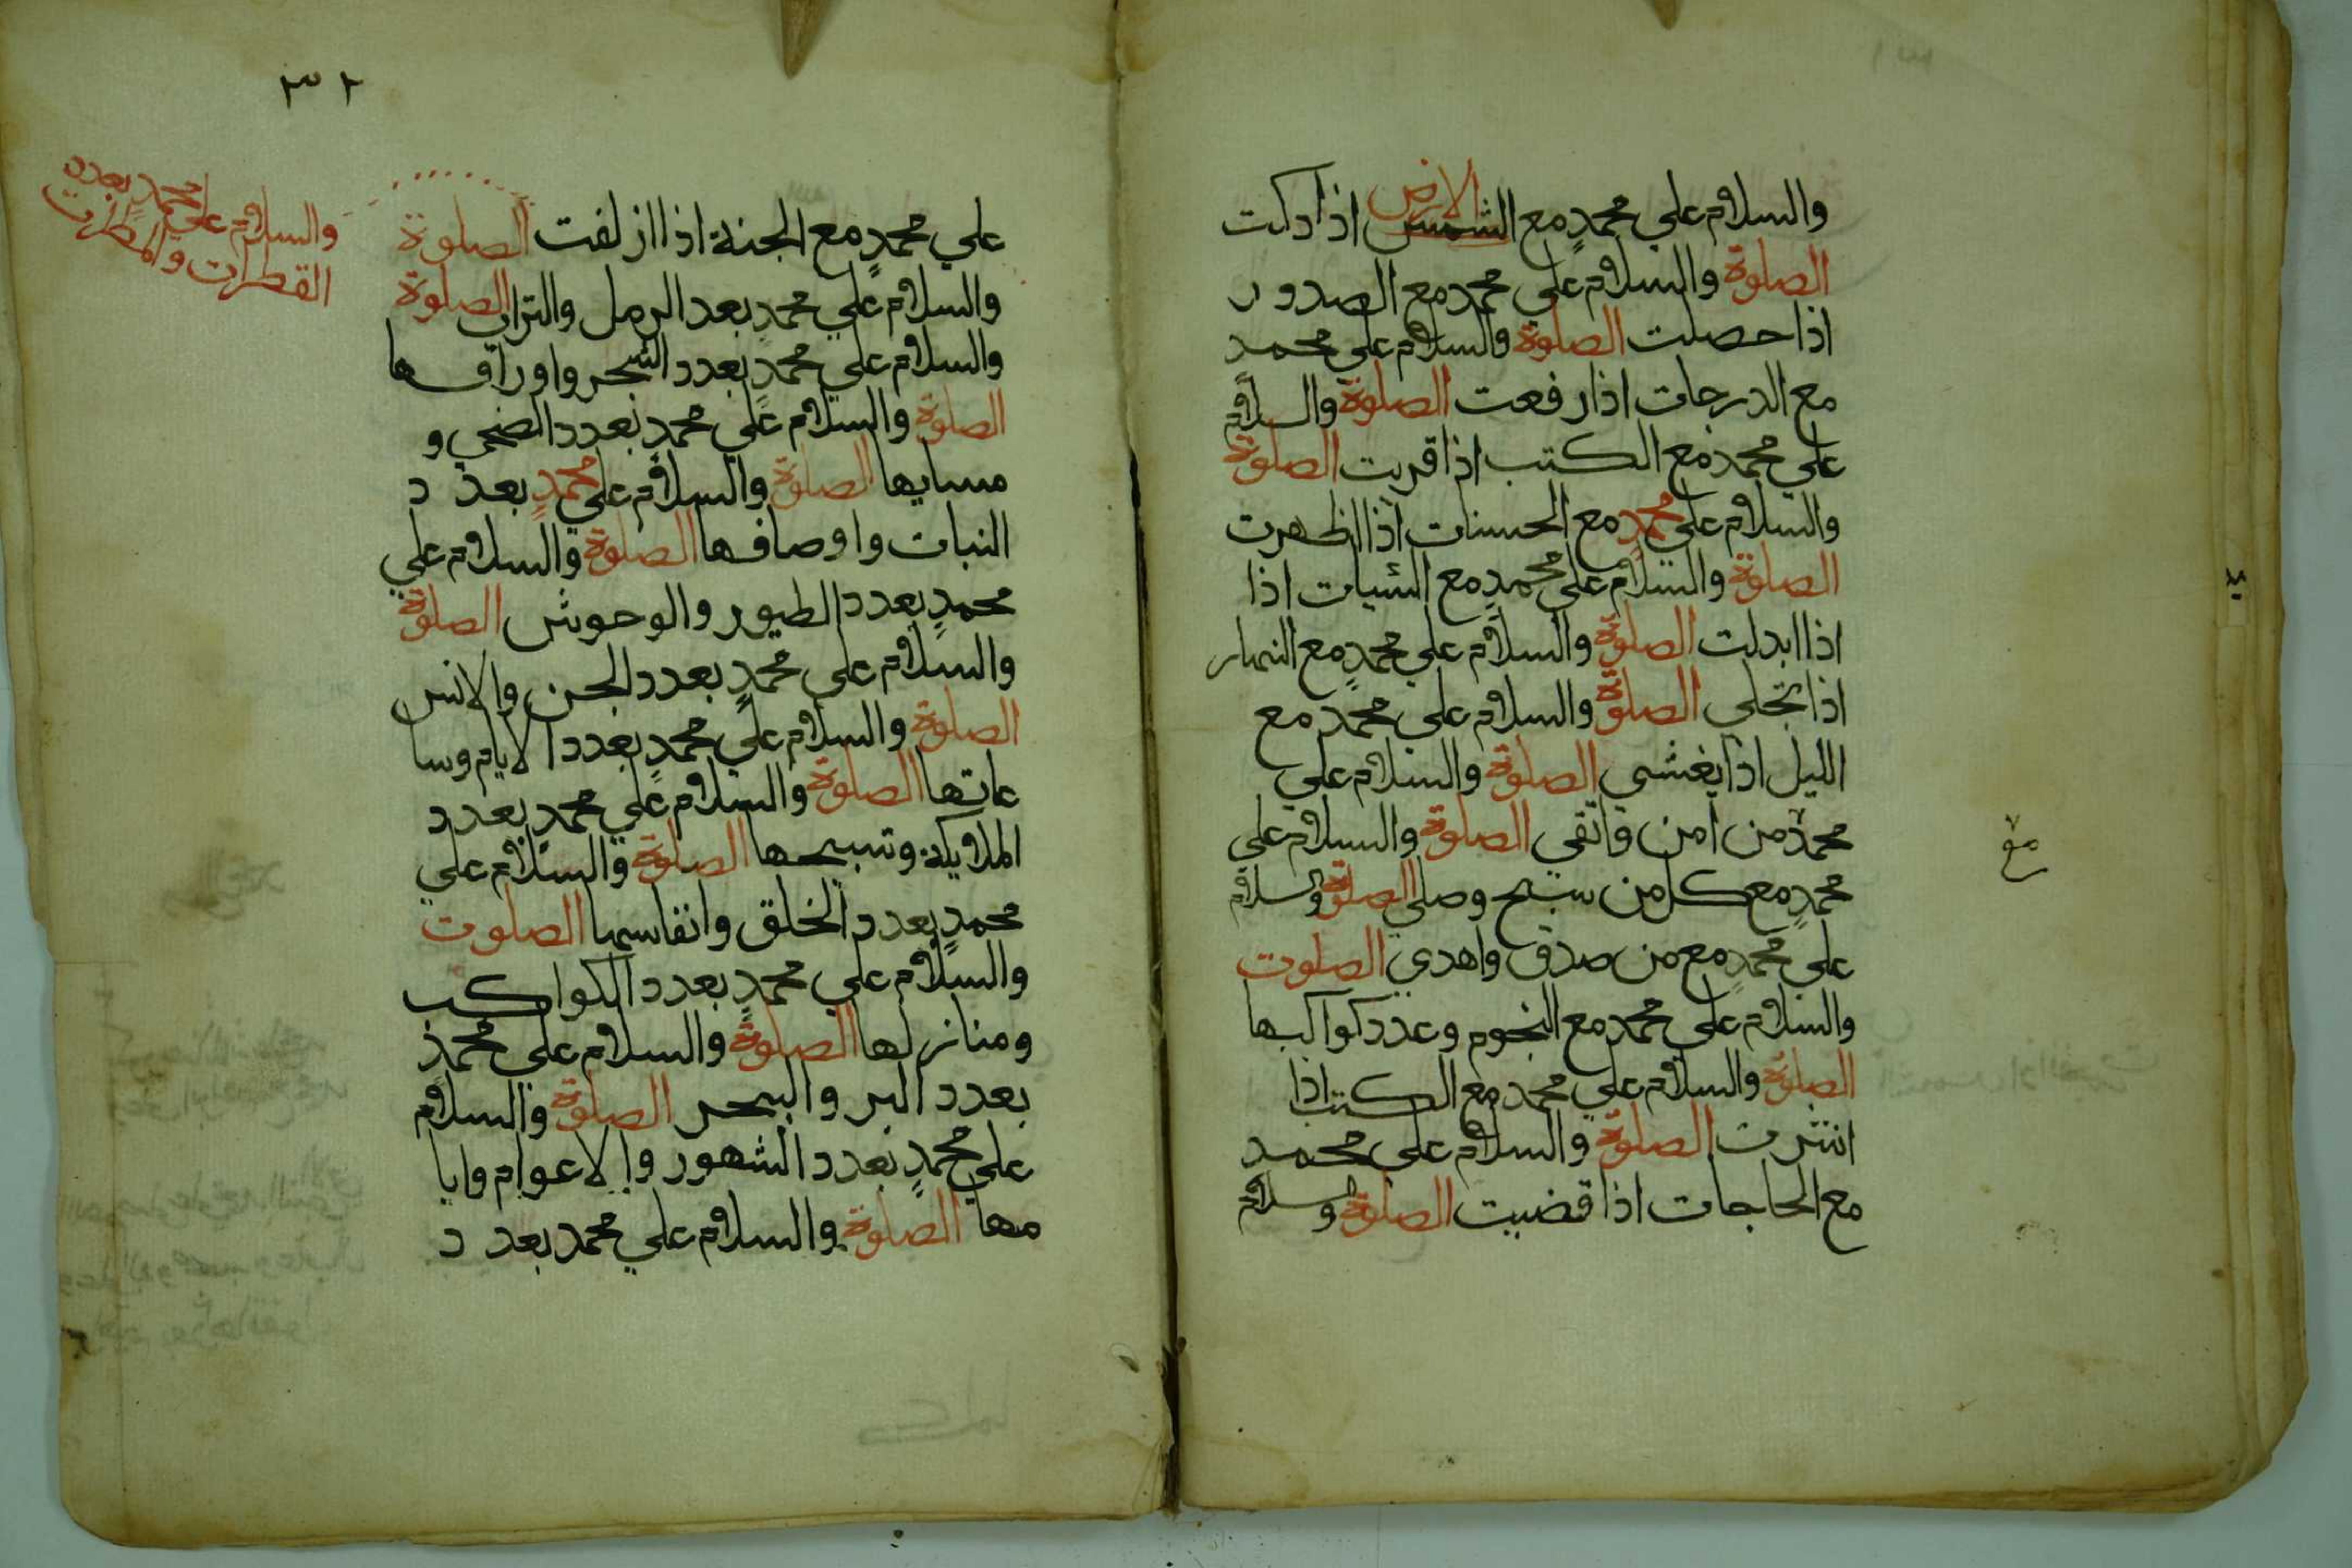 والسلام علي محمدٍ مع الشمس اذا دكت
الارض
الصلوة والسلام علي محمد مع الصدور
اذا حصلت الصلوة والسلام علي محمد
مع الدرجات اذا رفعت الصلوة والسلام
علي محمد مع الكتب اذا قريت الصلوة
والسلام علي محمدٍ مع الحسنات اذا اظهرت
الصلوة والسلام علي محمدٍ مع السّيات اذا
اذا ابدلت الصلوة والسلام علي محمدٍ مع النهار
اذا تجلي الصلوة والسلام علي محمد مع
الليل اذا يغشي الصلوة والسلام علي
محمد من امن واتقي الصلوة والسلام علي
مع
محمدٍ مع كل من سبح وصلي الصلوة والسلام
علي محمدٍ مع من صدق واهدي الصلوت
والسلام علي محمد مع النجوم وعدد كواكبها
الصلوة والسلام علي محمد مع الكتب اذا
انتثرت الصلوة والسلام علي محمد
مع الحاجات اذا قضيت الصلوة والسلام
٣٢
علي محمدٍ مع الجنة اذا ازلفت الصلوة
والسلام علي محمدٍ بعدد
القطرات والمطرت
والسلام علي محمدٍ بعد الرمل والتراب الصلوة
والسلام علي محمدٍ بعدد الشجر واوراقها
الصلوة والسلام علي محمدٍ بعدد الضحي و
مسايها الصلوة والسلام علي محمدٍ بعدد
النبات واوصافها الصلوة والسلام علي
محمدٍ بعدد الطيور والوحوش الصلوة
والسلام علي محمدٍ بعدد الجن والانس
الصلوة والسلام علي محمدٍ بعدد الايام وسا
عاتها الصلوة والسلام علي محمدٍ بعدد
الملايكة وتسبيحها الصلوة والسلام علي
محمدٍ بعدد الخلق وانفاسها الصلوت
والسلام علي محمدٍ بعدد الكواكب
ومنازلها الصلوة والسلام علي محمدٍ
بعدد البر والبحر الصلوة والسلام
علي محمدٍ بعدد الشهور والاعوام وايا
مها الصلوة والسلام علي محمد بعدد